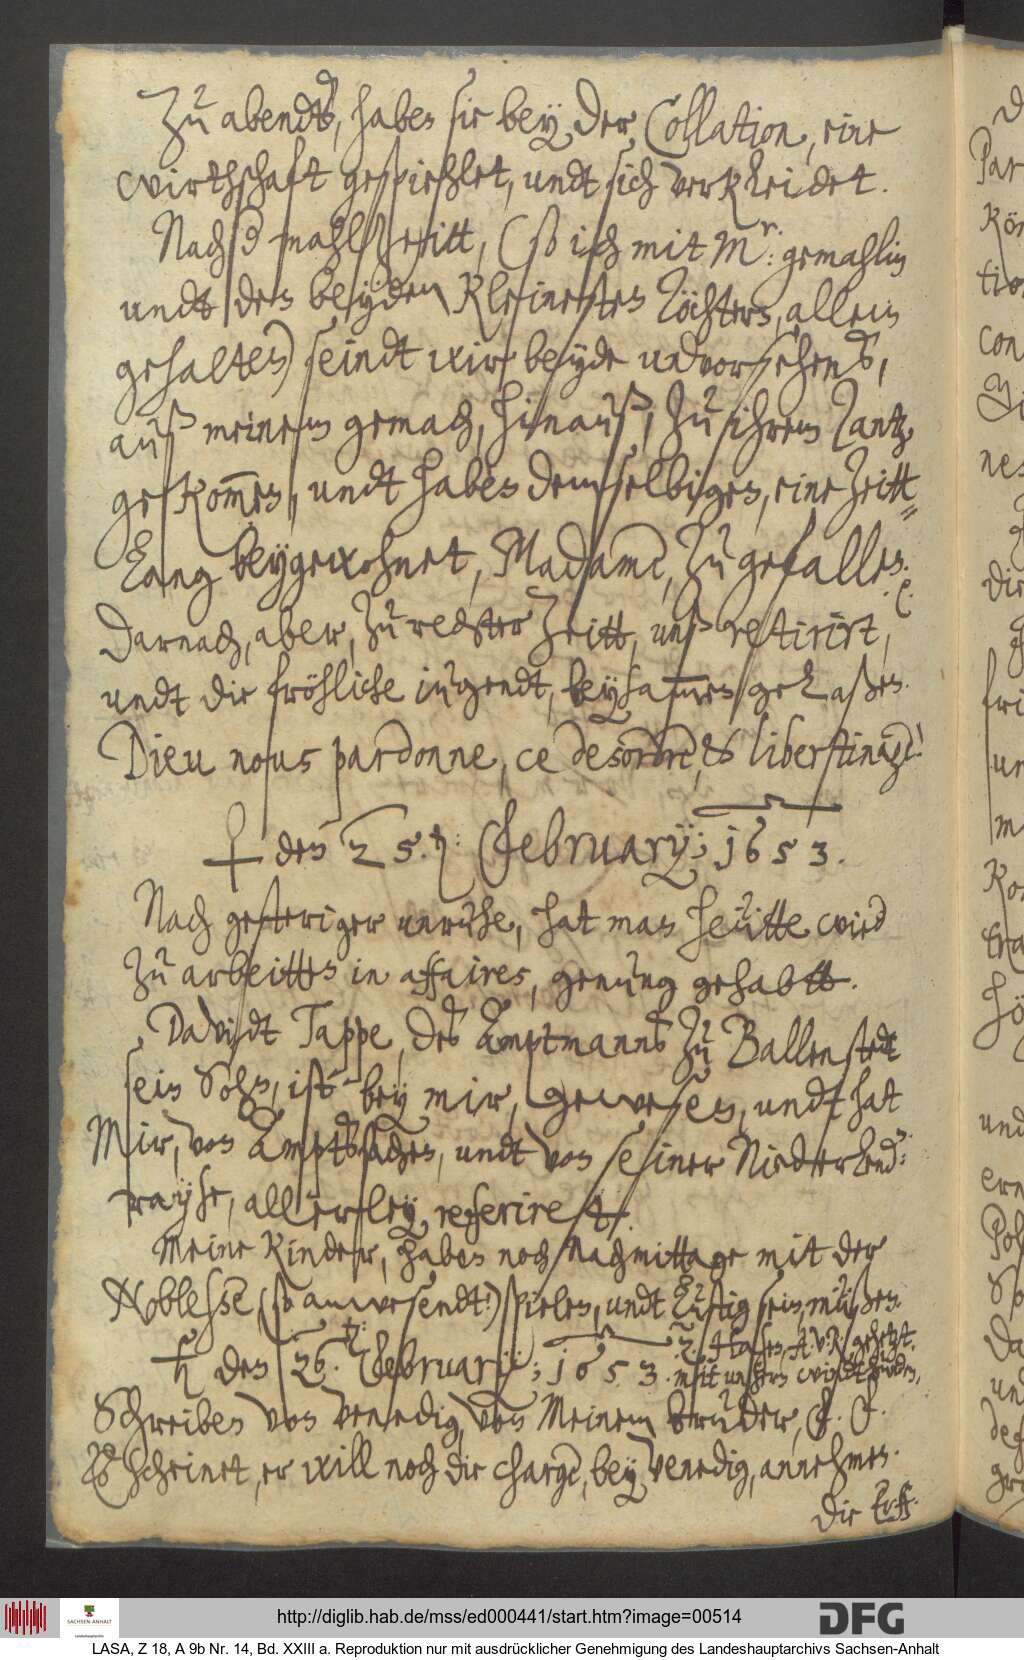 Zu abendts, haben sie bey der, Collation, eine
wirthschaft gespiehlet, undt sich verkleidet.
Nach d mahlzeitt, (so ich mit Mr: gemahlin
undt den beyden kleinesten Töchtern, allein
gehalten) seindt wir beyde unvorsehends,
auß meinem gemach, hinauß, zu ihrem Tantz,
gekommen, undt haben demselbigen, eine Zeitt=
lang beygewohnet, Madame, zu gefallen.
Darnach, aber, zu rechter Zeitt, unß retirirt,
undt die fröhliche iugendt, beysamen gelaßen.
Dieu nous pardonne, ce desordre, & libertinage!
♀ den 25. Februarij; 1653.
Nach gesteriger unruhe, hat man heütte wied
zu arbeitten in affaires, genung gehabtt.
Davidt Tappe, des Amptmanns zu Ballenstedt
sein Sohn, ist bey mir, gewesen, undt hat
Mir, von Amptssachen, undt von seiner Niederlend:
rayse, allerley, referiret.
Meine Kinder, haben noch Nachmittage mit der
Noblesse (so anwesendt) spielen, undt lustig sein, müßen.
♄ den 26. Februarij; 1653. 2. Hasen, A. v. R. gehetzt,
mit unsern windthunden,
Schreiben von Venedig, von Meinem bruder,
Es scheinet, er will noch die charge, bey Venedig, annehmen.
Die
http://diglib.hab.de/mss/ed000441/start.htm?image=00514
SACHSEN-ANHALT
Landeshauptarchiv
DFG
LASA, Z 18, A 9b Nr. 14, Bd. XXIII a. Reproduktion nur mit ausdrücklicher Genehmigung des Landeshauptarchivs Sachsen-Anhalt